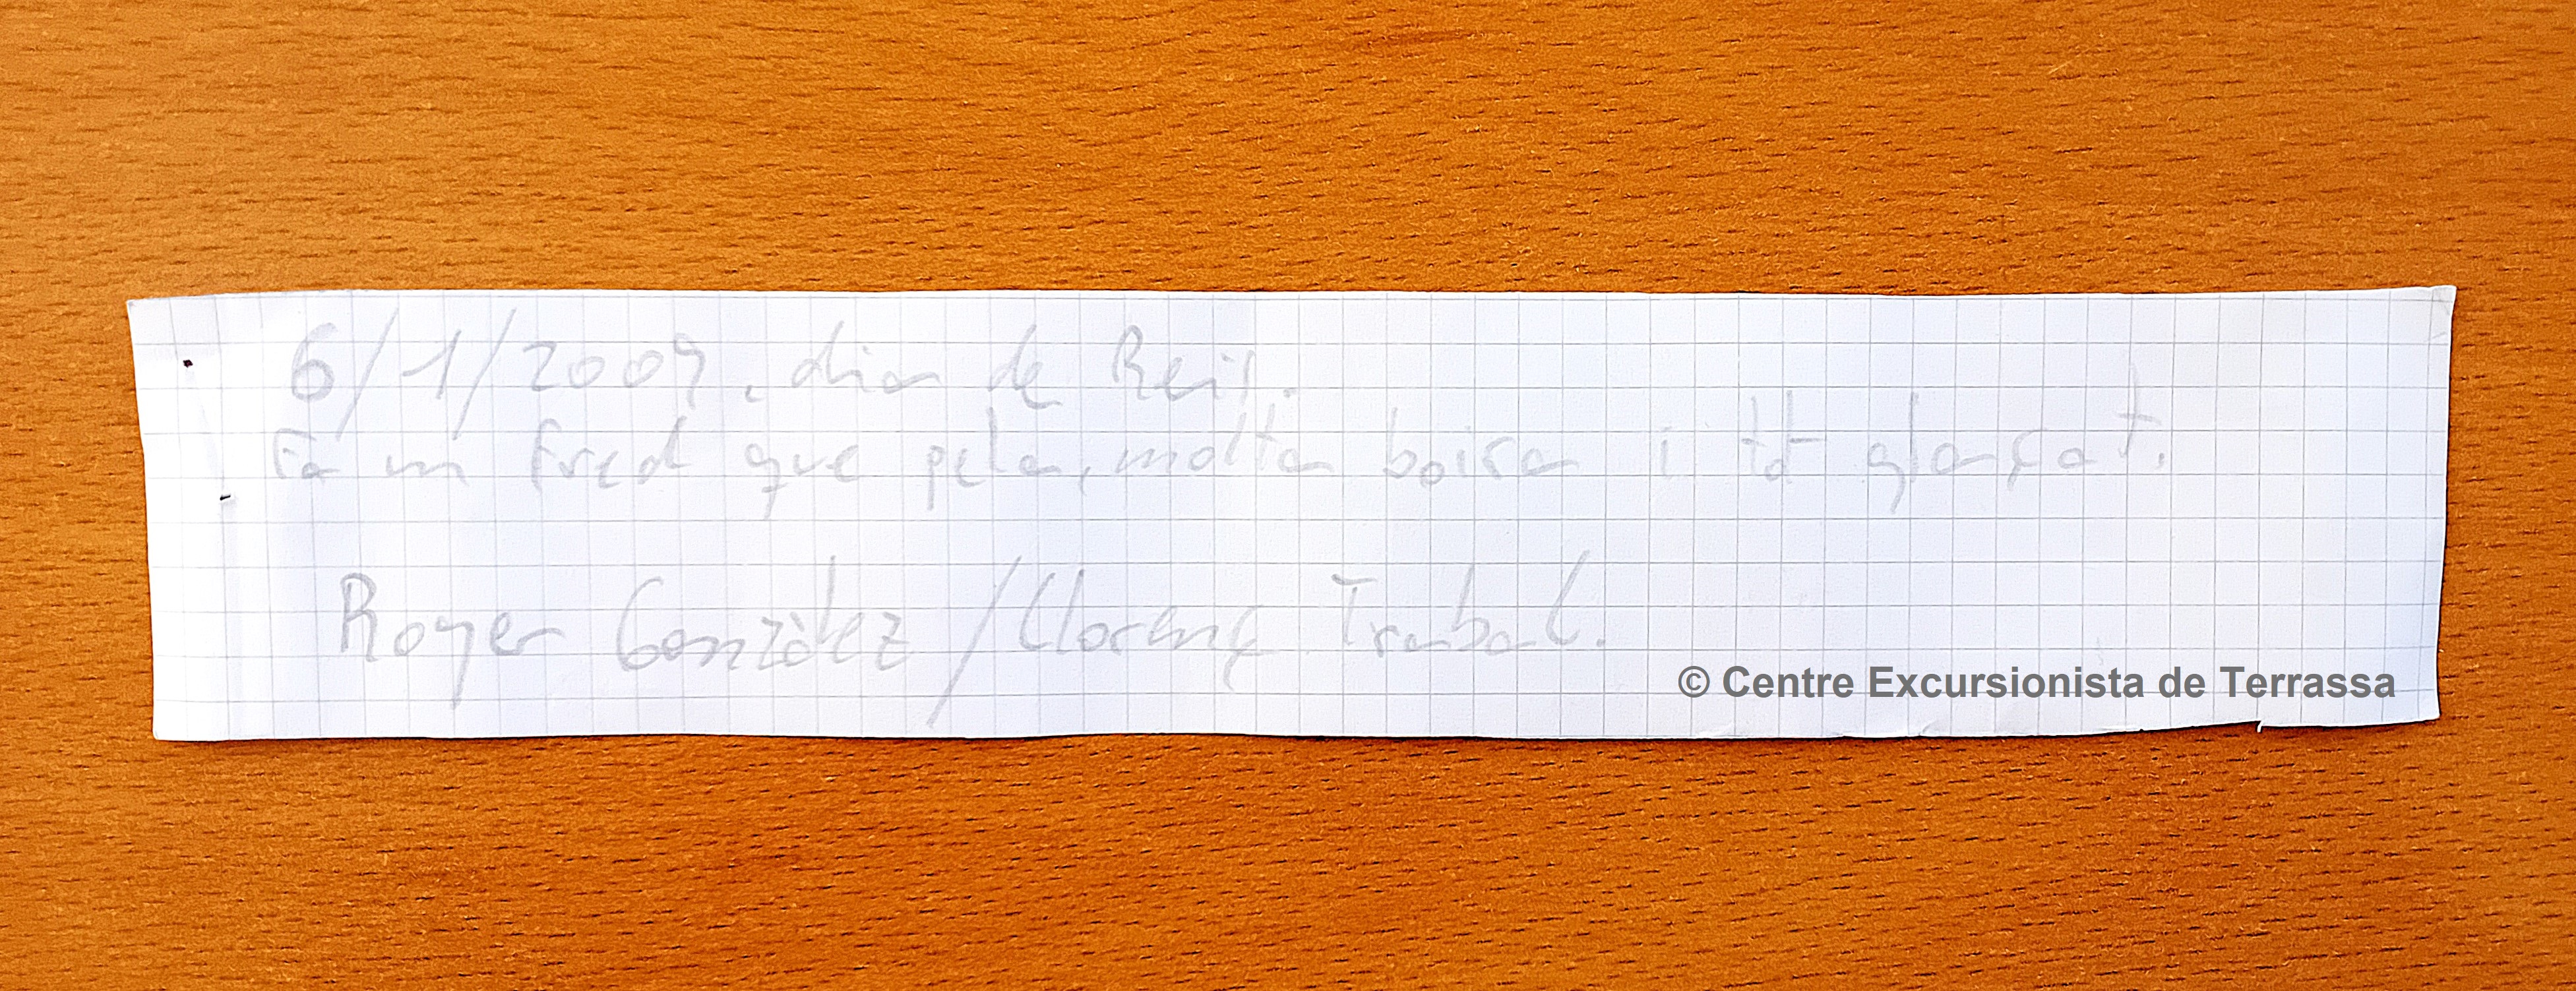 6/1/2009. dia de Reis.
Fa un fred que pela, molta boira i tot glaçat.
Roger González / Llorenç Trabal.
© Centre Excursionista de Terrassa